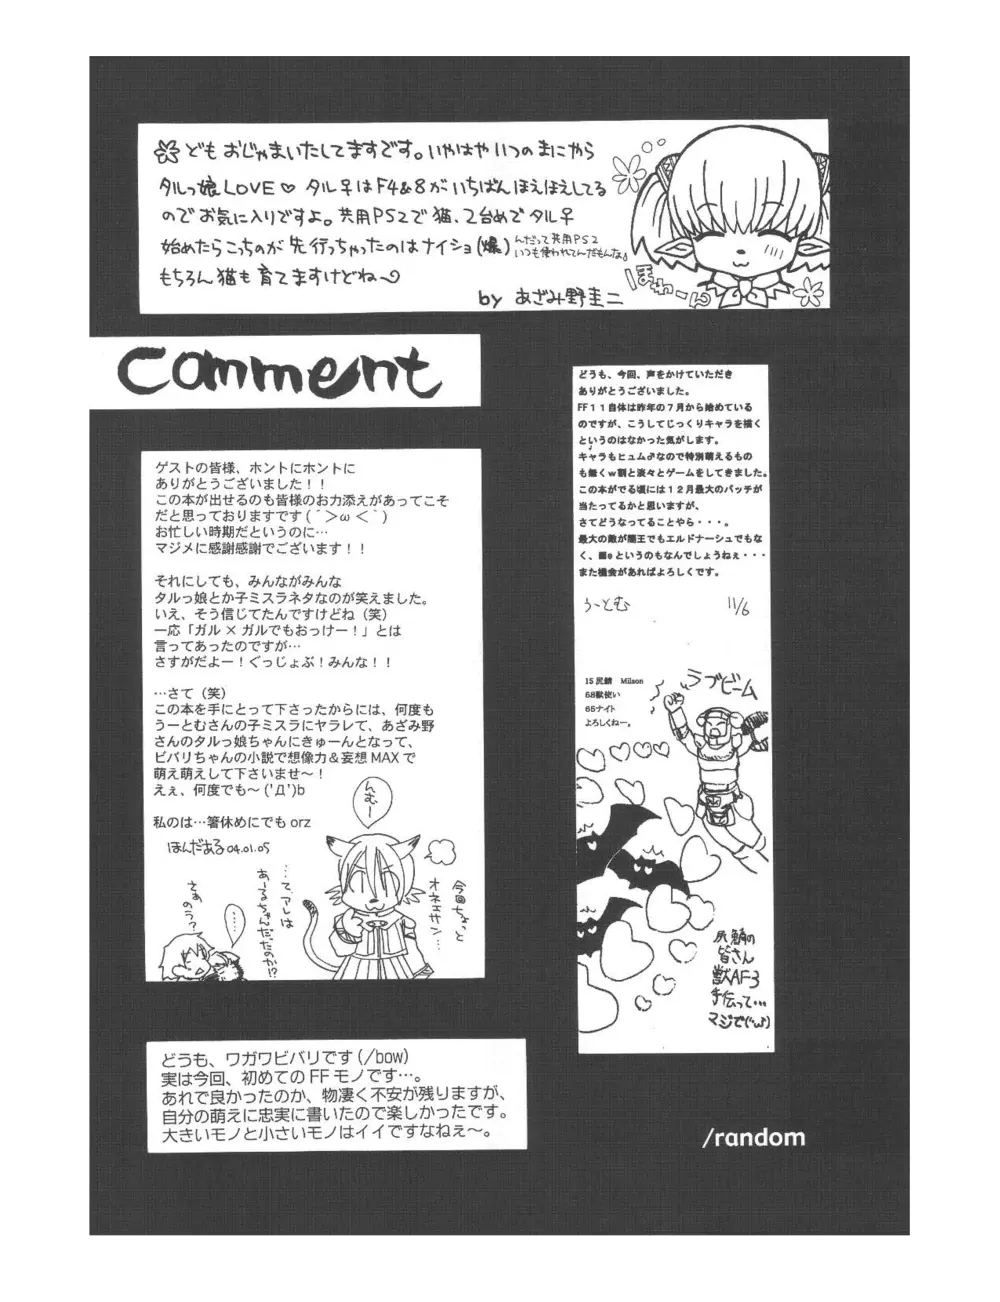 どもおじゃまいたしてますです。いやはやいつのまにやら
タルっ娘LOVE♡ タル♀はF4&8がいちばんほえほえしてる
のでお気に入りですよ。共用PS2で猫、2台めでタル♀
始めたらこっちのが先行っちゃったのはナイショ(爆)
んだって共用PS2
いつも使われてんだもんな♪
もちろん猫も育てますけどね〜
by あざみ野圭二
ほわーん
comment
ゲストの皆様、ホントにホントに
ありがとうございました！！
この本が出せるのも皆様のお力添えがあってこそ
だと思っておりますです(´＞ω＜`)
お忙しい時期だというのに…
マジメに感謝感謝でございます！！
それにしても、みんながみんな
タルっ娘とか子ミスラネタなのが笑えました。
いえ、そう信じてたんですけどね（笑）
一応「ガル×ガルでもおっけー！」とは
言ってあったのですが…
さすがだよー！ぐっじょぶ！みんな！！
…さて（笑）
この本を手にとって下さったからには、何度も
うーとむさんの子ミスラにヤラレて、あざみ野
さんのタルっ娘ちゃんにきゅーんとなって、
ビバリちゃんの小説で想像力＆妄想MAXで
萌え萌えして下さいませ〜！
えぇ、何度でも〜('Д')b
私のは…箸休めにでも orz
ほんだある 04.01.05
んむー
今回ちょっと
オネエサン…
…て、アレは
あーるちゃんだったのか!?
……
さあのう?
どうも、今回、声をかけていただき
ありがとうございました。
FF１１自体は昨年の７月から始めている
のですが、こうしてじっくりキャラを描く
というのはなかった気がします。
キャラもヒュム♂なので特別萌えるもの
も無くｗ割と淡々とゲームをしてきました。
この本がでる頃には１２月最大のパッチが
当たってるかと思いますが、
さてどうなってることやら・・・。
最大の敵が闇王でもエルドナーシュでもな
く、■eというのもなんでしょうねぇ・・・
また機会があればよろしくです。
うーとむ 11/6
15尻鯖 Milson
68獣使い
65ナイト
よろしくねー。
ラブビーム
尻鯖の
皆さん
獣AF3
手伝って…
マジで
どうも、ワガワビバリです(/bow)
実は今回、初めてのFFモノです…。
あれで良かったのか、物凄く不安が残りますが、
自分の萌えに忠実に書いたので楽しかったです。
大きいモノと小さいモノはイイですなねぇ〜。
/random